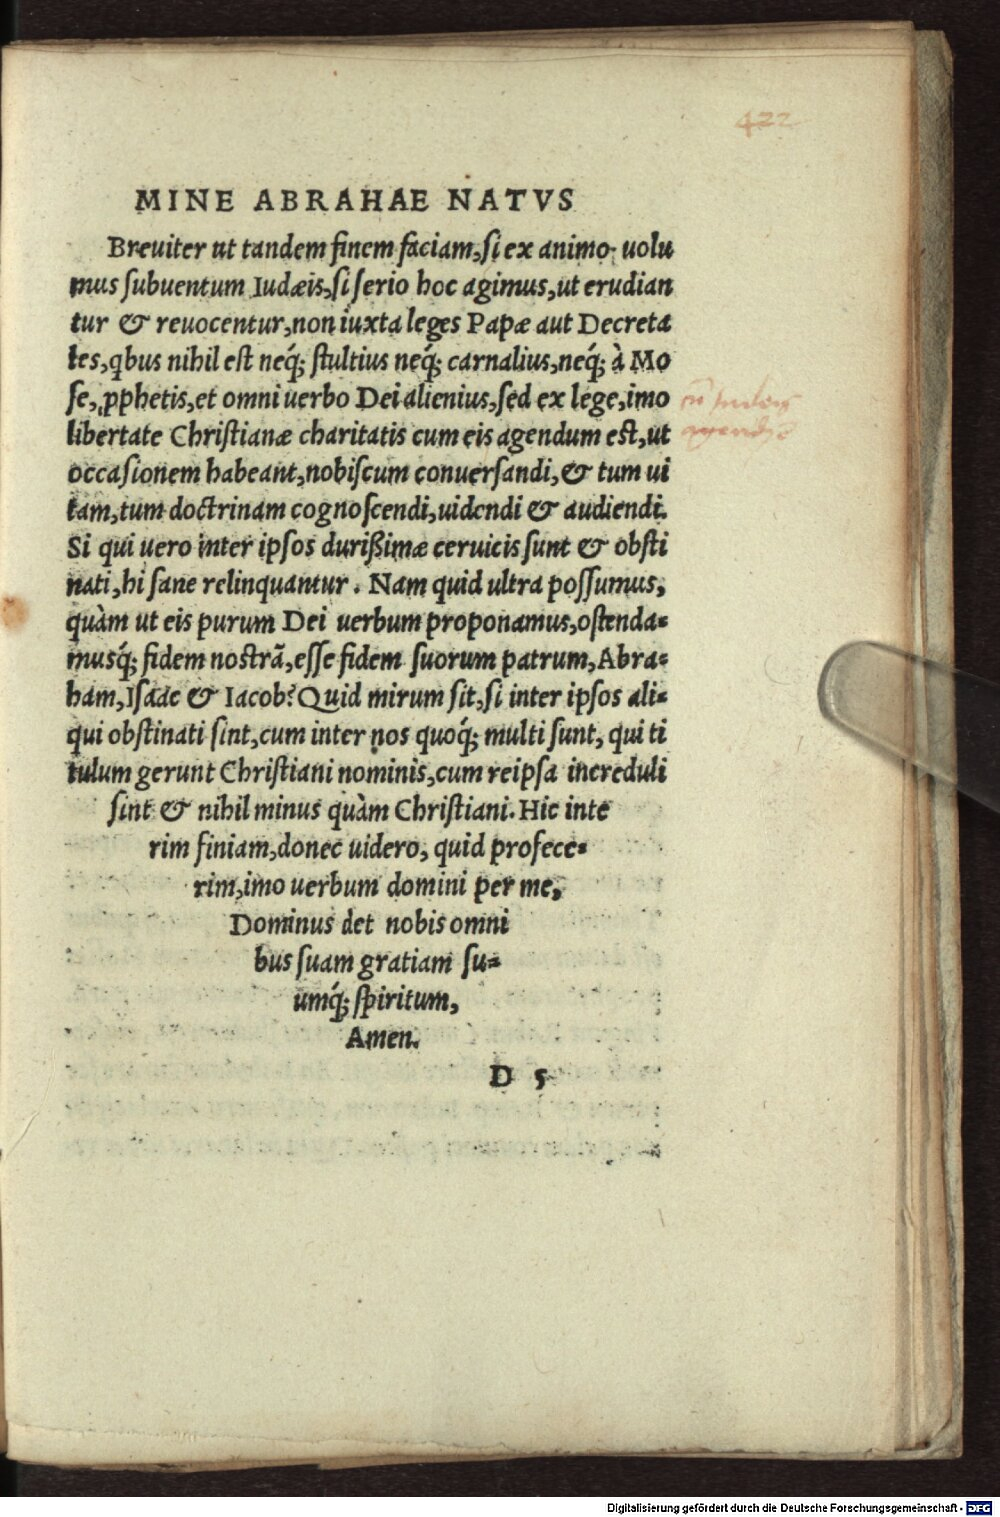 422
MINE ABRAHAE NATVS
Breuiter ut tandem finem faciam, si ex animo uolu
mus subuentum Iudæis, si serio hoc agimus, ut erudian
tur & reuocentur, non iuxta leges Papæ aut Decreta
les, qbus nihil est neq́; stultius neq́; carnalius, neq́; à Mo
se, ꝓphetis, et omni uerbo Dei alienius, sed ex lege, imo
libertate Christianæ charitatis cum eis agendum est, ut
occasionem habeant, nobiscum conuersandi, & tum ui
tam, tum doctrinam cognoscendi, uidendi & audiendi.
Si qui uero inter ipsos durißimæ ceruicis sunt & obsti
nati, hi sane relinquantur. Nam quid ultra possumus,
quàm ut eis purum Dei uerbum proponamus, ostenda=
musq́; fidem nostrã, esse fidem suorum patrum, Abra=
ham, Isaac & Iacob? Quid mirum sit, si inter ipsos ali=
qui obstinati sint, cum inter nos quoq́; multi sunt, qui ti
tulum gerunt Christiani nominis, cum reipsa increduli
sint & nihil minus quàm Christiani. Hic inte
rim finiam, donec uidero, quid profece=
rim, imo uerbum domini per me,
Dominus det nobis omni
bus suam gratiam su=
umq́; spiritum,
Amen.
D 5
Digitalisierung gefördert durch die Deutsche Forschungsgemeinschaft - DFG